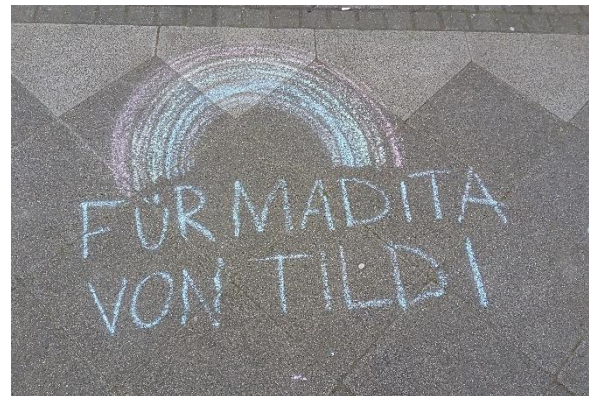 FÜR MADITA
VON TILDI